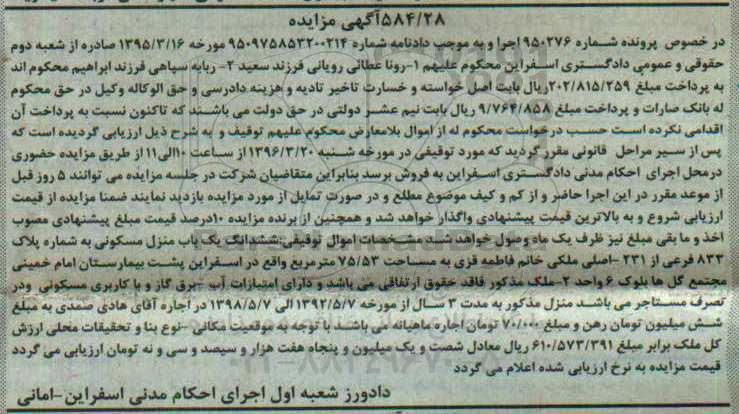 ۵۸۴/۲۸آگهی مزایده
در خصوص پرونده شماره ۹۵۰۲۷۶ اجرا و به موجب دادنامه شماره ۹۵۰۹۷۵۸۵۳۲۰۰۲۱۴ مورخه ۱۳۹۵/۳/۱۶ صادره از شعبه دوم
حقوقی و عمومی دادگستری اسفراین محکوم علیهم ۱-رونا عطائی رویانی فرزند سعید ۲- ربابه سپاهی فرزند ابراهیم محکوم اند
به پرداخت مبلغ ۲۰۲/۸۱۵/۲۵۹ریال بابت اصل خواسته و خسارت تاخیر تادیه و هزینه دادرسی و حق الوکاله وکیل در حق محکوم
له بانک صارات و پرداخت مبلغ ۹/۷۶۴/۸۵۸ ریال بابت نیم عشر دولتی در حق دولت می باشند که تاکنون نسبت به پرداخت آن
اقدامی نکرده است حسب درخواست محکوم له از اموال بلامعارض محکوم علیهم توقیف و به شرح ذیل ارزیابی گردیده است که
پس از سیر مراحل قانونی مقرر گردید که مورد توقیفی در مورخه شنبه ۱۳۹۶/۳/۲۰ از ساعت ۱۰الی۱۱ از طریق مزایده حضوری
درمحل اجرای احکام مدنی دادگستری اسفراین به فروش برسد بنابراین متقاضیان شرکت در جلسه مزایده می توانند ۵ روز قبل
از موعد مقرر در این اجرا حاضر و از کم و کیف موضوع مطلع و در صورت تمایل از مورد مزایده بازدید نمایند ضمنا مزایده از قیمت
ارزیابی شروع و به بالاترین قیمت پیشنهادی واگذار خواهد شد و همچنین از برنده مزایده ۱۰درصد قیمت مبلغ پیشنهادی مصوب
اخذ و ما بقی مبلغ نیز ظرف یک ماه وصول خواهد شد مشخصات اموال توقیفی:ششدانگ یک باب منزل مسکونی به شماره پلاک
۸۳۳ فرعی از ۲۳۱ -اصلی ملکی خانم فاطمه قزی به مساحت ۷۵/۵۳ مترمربع واقع در اسفراین پشت بیمارستان امام خمینی
مجتمع گل ها بلوک ۶ واحد ۲-ملک مذکور فاقد حقوق ارتفاقی می باشد و دارای امتیازات آب -برق گاز و با کاربری مسکونی ودر
تصرف مستاجر می باشد منزل مذکور به مدت ۳ سال از مورخه ۱۳۹۲/۵/۷ الی ۱۳۹۸/۵/۷ در اجاره آقای هادی صمدی به مبلغ
شش میلیون تومان رهن و مبلغ ۷۰/۰۰۰ تومان اجاره ماهیانه می باشد با توجه به موقعیت مکانی -نوع بنا و تحقیقات محلی ارزش
کل ملک برابر مبلغ ۶۱۰/۵۷۳/۳۹۱ ریال معادل شصت و یک میلیون و پنجاه هفت هزار و سیصد و سی و نه تومان ارزیابی می گردد
قیمت مزایده به نرخ ارزیابی شده اعلام می گردد
دادورز شعبه اول اجرای احکام مدنی اسفراین-امانی